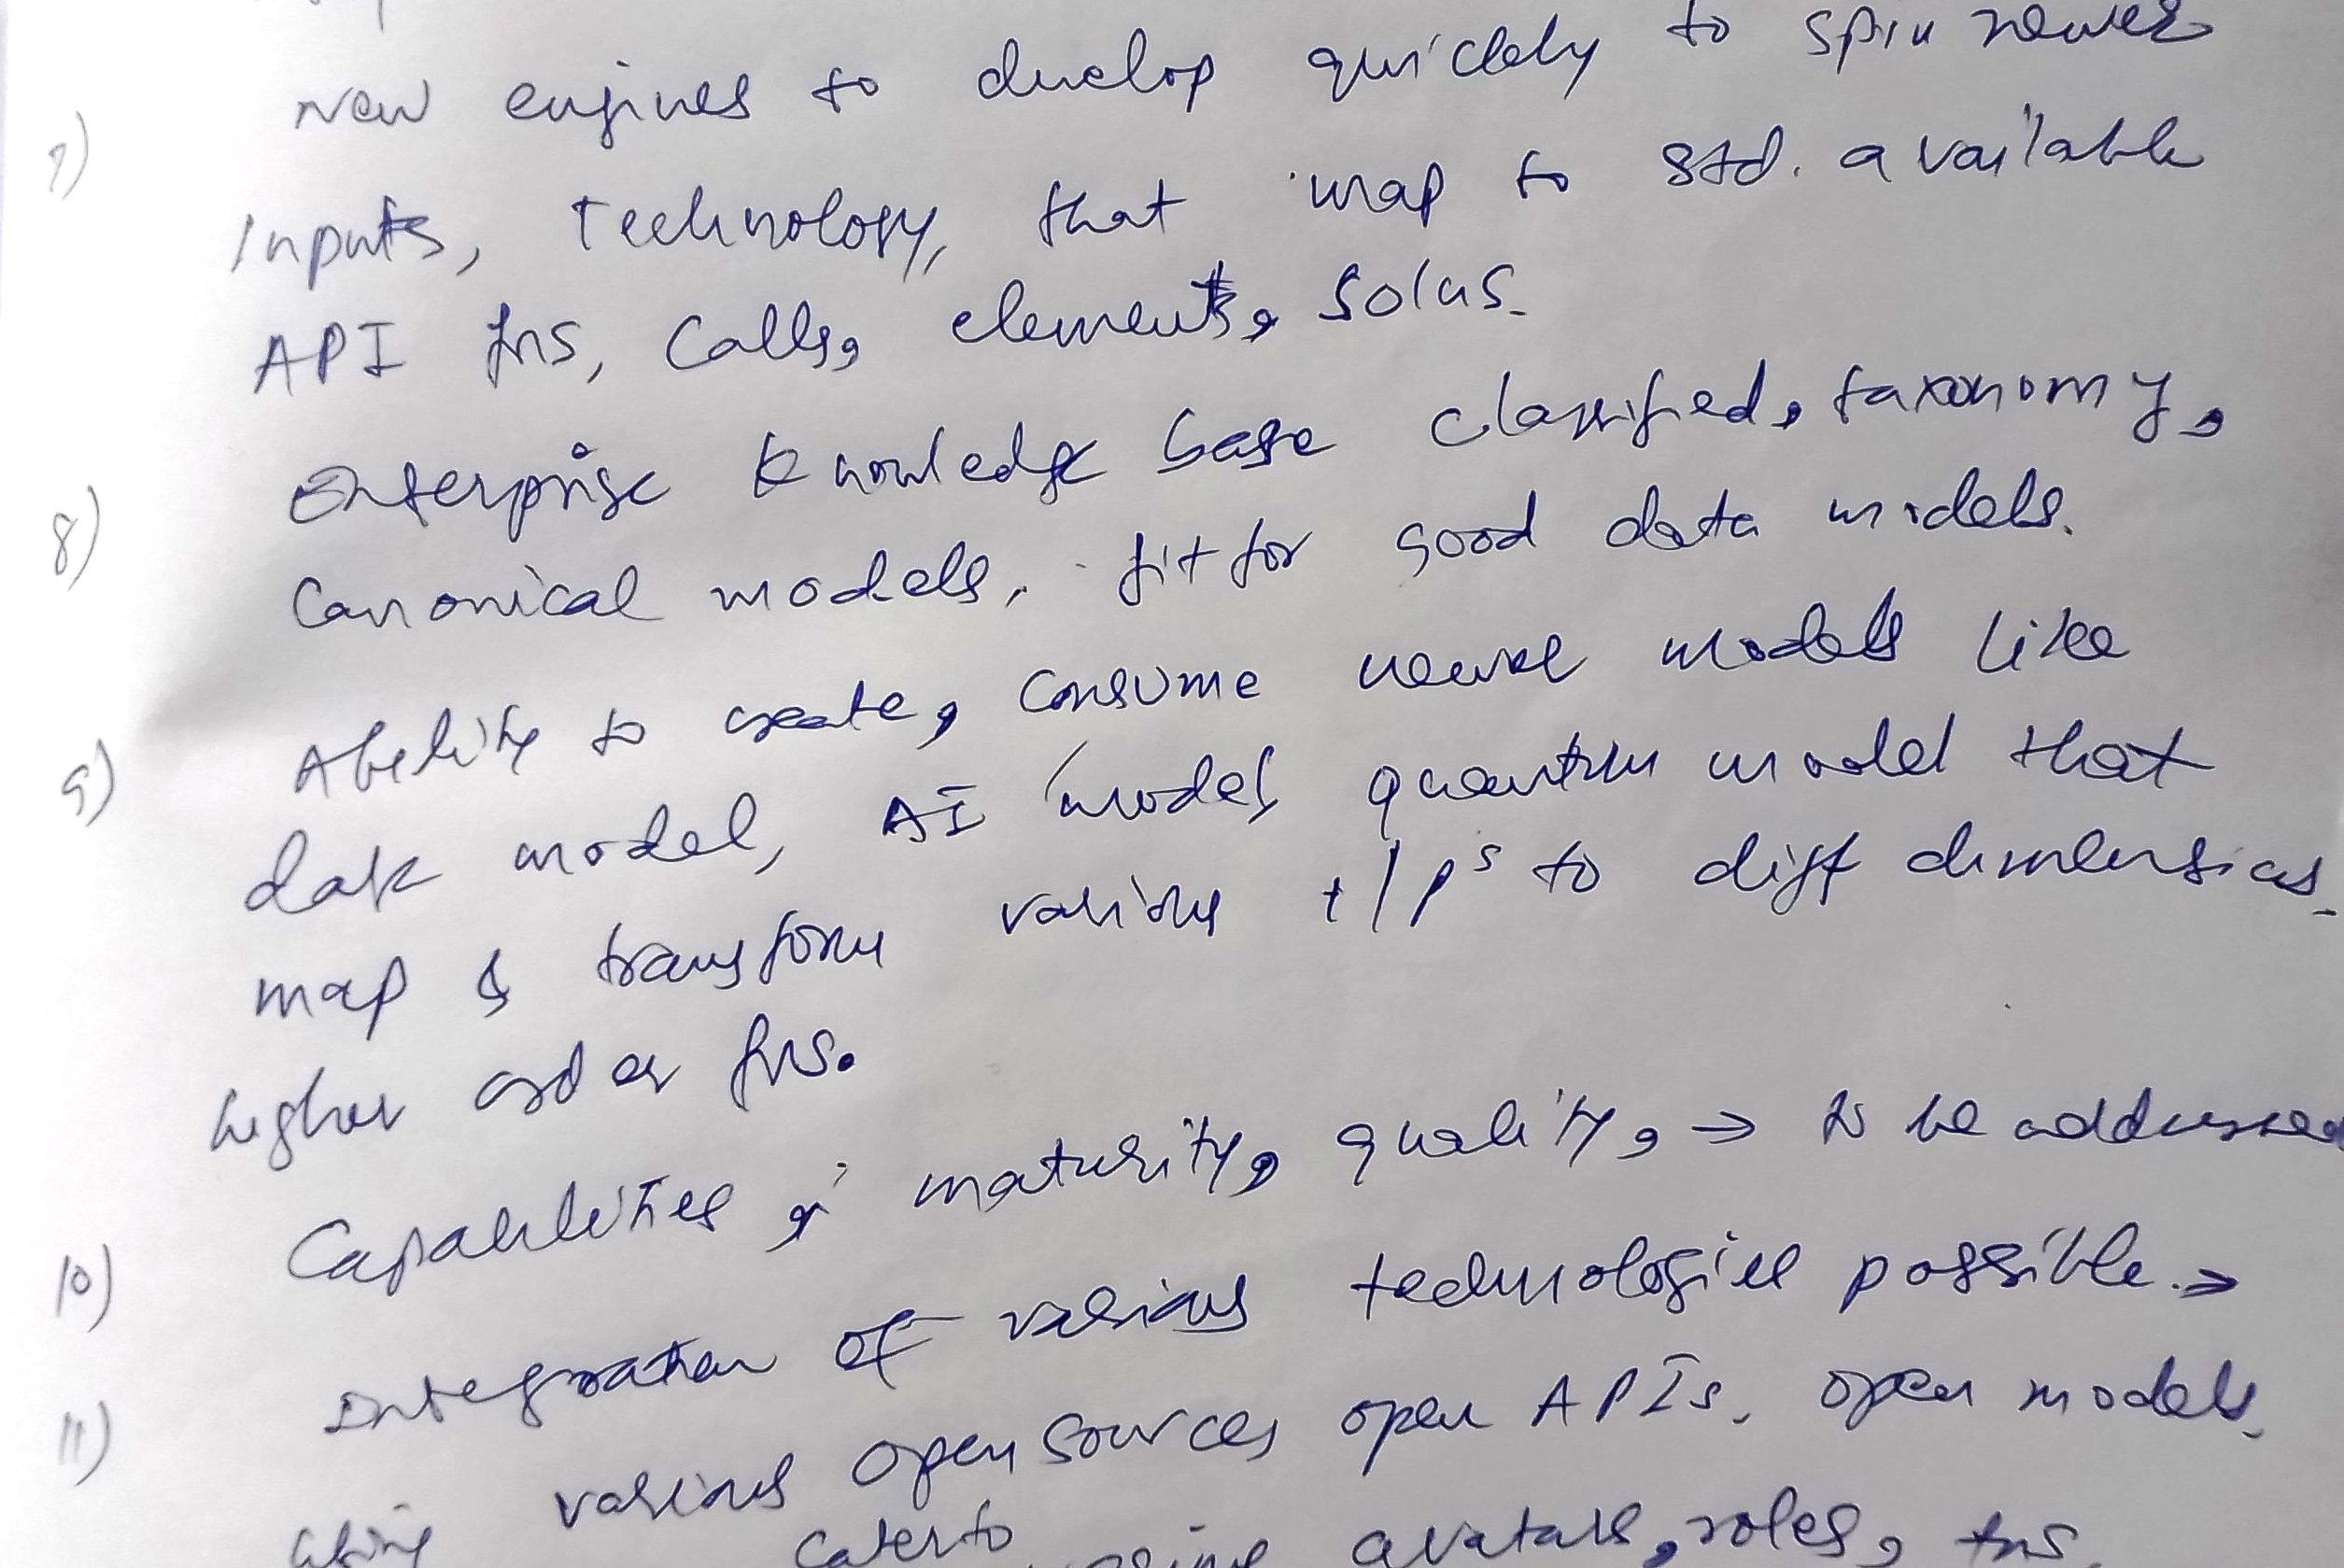 7) New engines to develop quickly to spin newer
Inputs, Technology, that map to std. available
API fns, Calls, elements, solns.
8) Enterprise Knowledge base classified, taxonomy,
Canonical models, fit for good data models.
9) Ability to create, consume newer models like
data model, AI model, quantum model that
map & transform various i/ps to diff dimensions
higher order fns.
10) Capabilities, maturity, quality, → to be addressed
11) Integration of various technologies possible. →
using various open sources open APIs, open models,
cater to avatars, roles, fns.